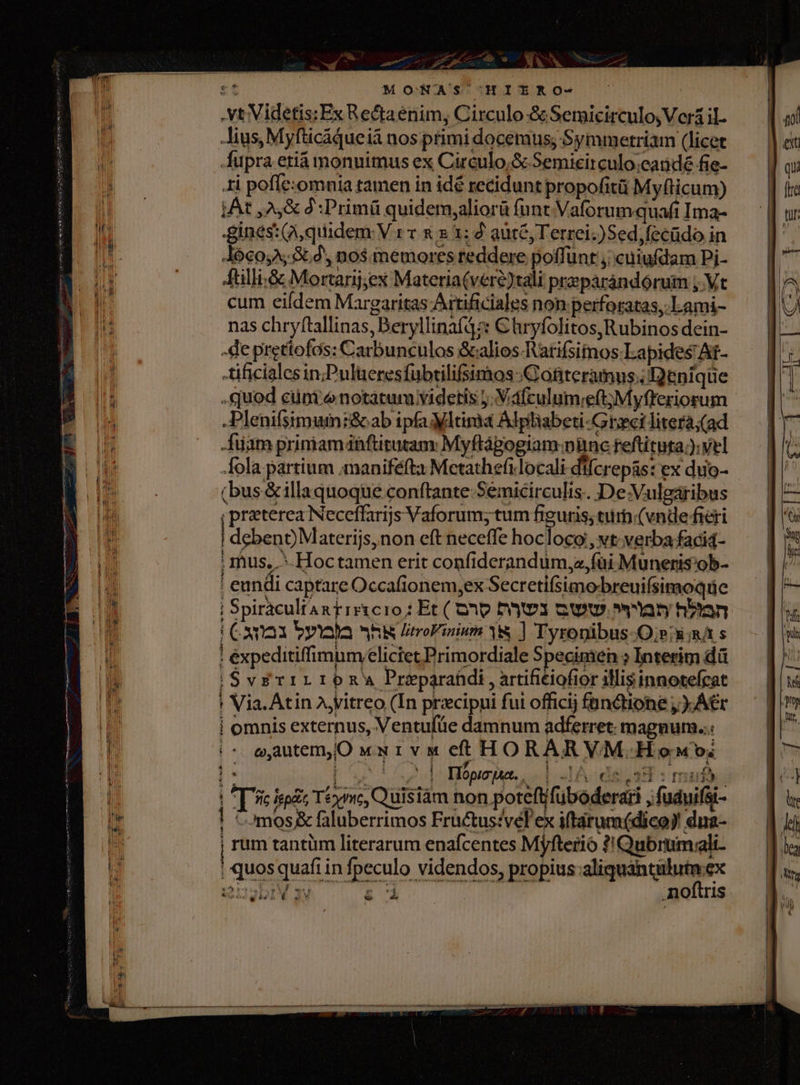 MONAS HIERO-
vt Videtis: Ex Recta enim, Circulo & Semicirculo, Verá il-
lius, Myſticáque iã nos primi docemus, Symmetriam (licet
ſupra etiã monuimus ex Circulo, & Semicirculo, eandẽ fie-
ri poſſe: omnia tamen in idẽ recidunt propoſitũ Myſticum)
At λ, & δ: Primũ quidem, aliorũ ſunt Vaſorum quaſi Ima-
gines: (λ, quidem VITREI: δ autẽ, Terrei.) Sed, ſecũdo in
loco, λ, & δ, nos memores reddere poſſunt, cuiuſdam Pi-
ſtilli, & Mortarij, ex Materia (verè) tali præparandorum, Vt
cum eiſdem Margaritas Artificiales non perforatas, Lami-
nas chryſtallinas, Beryllinaſq;: Chryſolitos, Rubinos dein-
de pretioſos: Carbunculos & alios Rariſsimos Lapides Ar-
tificiales in, Pulueres ſubtiliſsimos Conteramus. Deniqúe
quod cùm ω notatum videtis, Vaſculum eſt, Myſteriorum
Pleniſsimum: & ab ipſa Vltima Alphabeti Græci litera, (ad
ſuam primam inſtitutam Myſtagogiam nunc reſtituta) vel
ſola partium manifeſta Metatheſi locali diſcrepãs: ex duo-
bus & illa quoque conſtante Semicirculis. De Vulgaribus
præterea Neceſſarijs Vaſorum, tum figuris, tum (vnde fieri
debent) Materijs, non eſt neceſſe hoc loco, vt verba facia-
mus. Hoc tamen erit conſiderandum, ω, ſui Muneris ob-
eundi captare Occaſionem, ex Secretiſsimo breuiſsimoqúe
expeditiſſimum elicíet Primordiale Specimen; Interim dũ
SVBTILIORA Præparandi, artificioſior illis innoteſcat
Via. At in λ, vitreo (In præcipui ſui officij functione,) Aër
omnis externus, Ventuſúe damnum adferret magnum.
ω, autem, OMNIVM eſt HORARVM. Homo.
Πόρισμα.
Τῆς ἱερᾶς Τέχνης, Quis iàm non poteſt ſuboderari, ſuauiſsi-
mos & ſaluberrimos Fructus: vel ex iſtarum (dico) dua-
rum tantùm literarum enaſcentes Myſterio? Quorum ali-
quos quaſi in ſpeculo videndos, propius aliquantulùm ex
noſtris